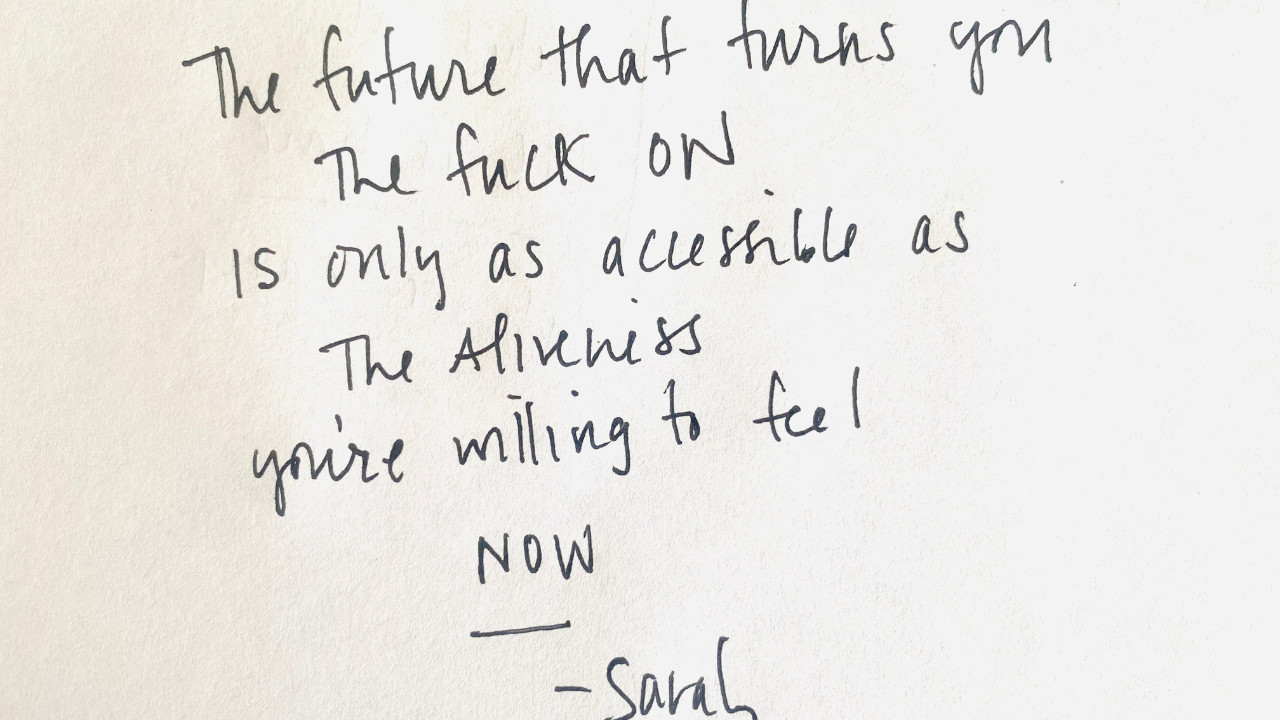 The future that turns you
The fuck ON
IS only as accessible as
The Aliveness
you're willing to feel
NOW
- Sarah